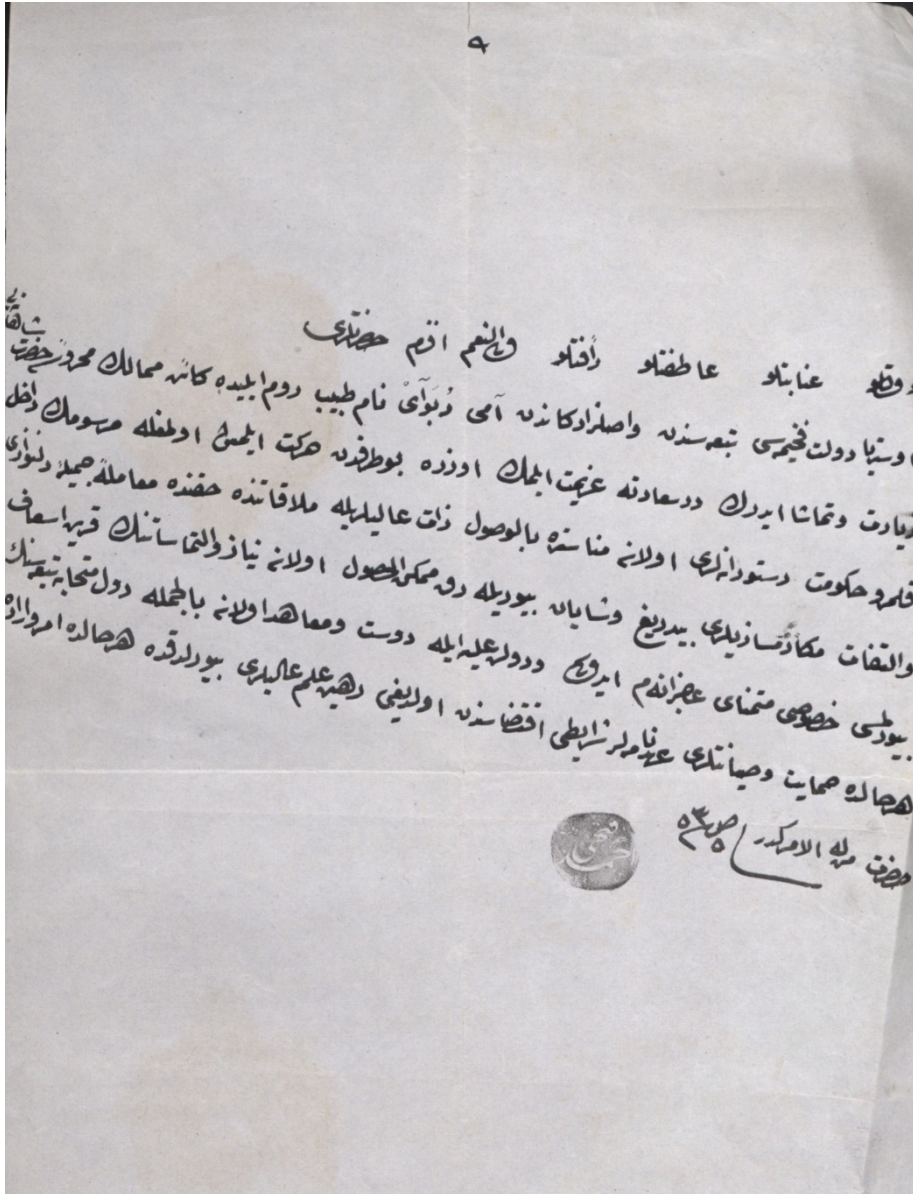 عنايتلو عاطفتلو رأفتلو ولى النعم افندم حضرتلرى
اوستريا دولت فخيمه‌سى تبعه‌سندن واصلزادكاندن آمى دُبوآىْ نام طبيب روم ايليده كائن ممالك محروسهٔ حضرت شاهانه‌يى
زيارت وتماشا ايدرك درسعادته عزيمت ايلمك اوزره بوطرفدن حركت ايلمش اولمغله مرسومك داخل
قلمرو حكومت دستورانه‌لرى اولان مناستره بالوصول ذات عاليلريله ملاقاتنده حقنده معاملهٔ جميلهٔ دلنوازى
والتفات بيدريغ وشايان بيوريله‌رق ممكن الحصول اولان نياز والتماساتنك قرين اسعاف
بيورلمسى خصوصى متمناى عاجزانه‌م ايدوكى ودولت عليه ايله دوست ومعاهد اولان بالجمله دول متحابه تبعه‌سنك
هرحالده حمايت وصيانتلرى عهدنامه‌لر شرايطى اقتضاسندن اولديغى رهين علم عاليلرى بيورلدقده هرحالده امر واراده
حضرت من له الامركدر